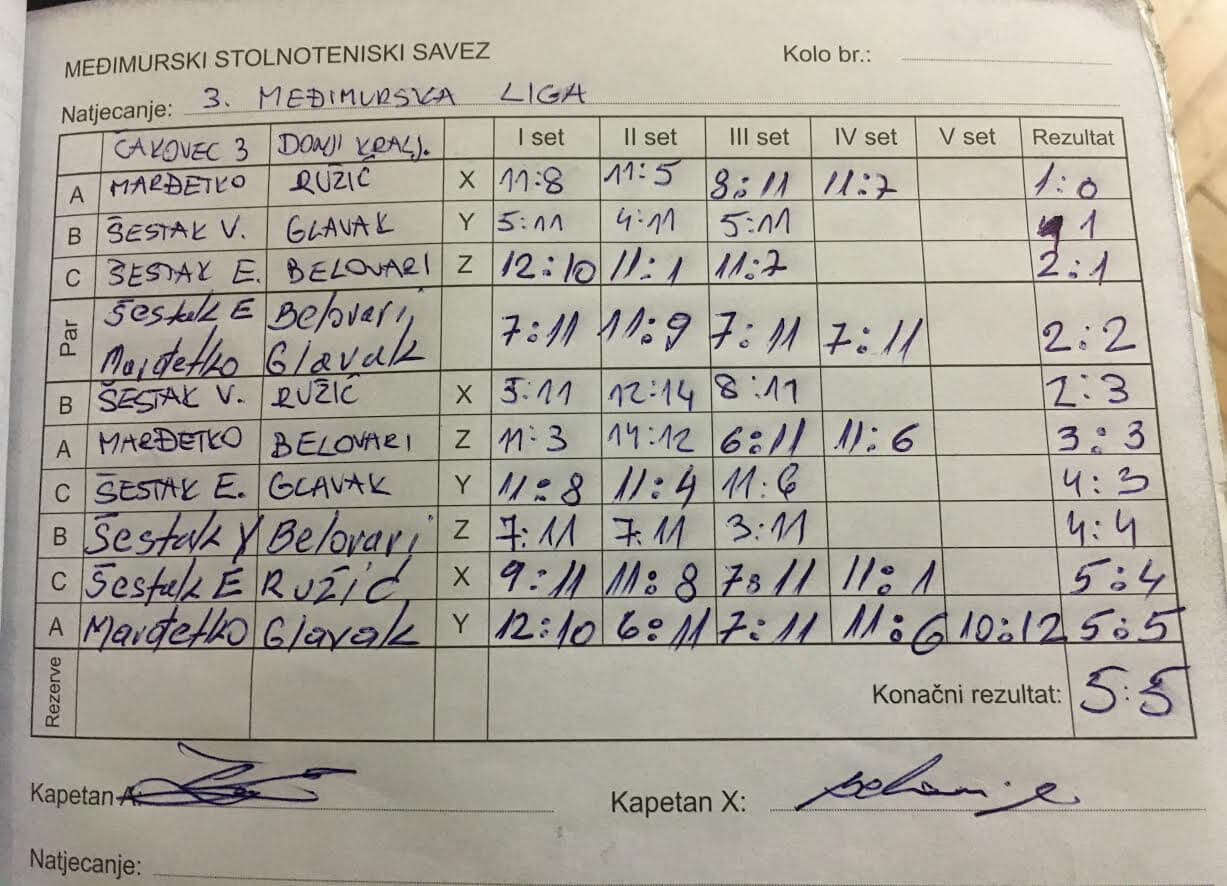 MEĐIMURSKI STOLNOTENISKI SAVEZ Kolo br.:
Natjecanje: 3. MEĐIMURSKA LIGA
ČAKOVEC 3 DONJI KRALJ. I set II set III set IV set V set Rezultat
A MARĐETKO RUŽIĆ X 11:8 11:5 8:11 11:7 1:0
B ŠESTAK V. GLAVAK Y 5:11 4:11 5:11 1
C ŠESTAK E. BELOVARI Z 12:10 11:1 11:7 2:1
Par Šestak E Belovari, 7:11 11:9 7:11 7:11 2:2
Marđetko Glavak
B ŠESTAK V. RUŽIĆ X 5:11 12:14 8:11 2:3
A MARĐETKO BELOVARI Z 11:3 14:12 6:11 11:6 3:3
C ŠESTAK E. GLAVAK Y 11:8 11:4 11:6 4:3
B Šestak V Belovari Z 7:11 7:11 3:11 4:4
C Šestak E RUŽIĆ X 9:11 11:8 7:11 11:1 5:4
A Marđetko Glavak Y 12:10 6:11 7:11 11:6 10:12 5:5
Rezerve Konačni rezultat: 5:5
Kapetan A: Kapetan X:
Natjecanje: